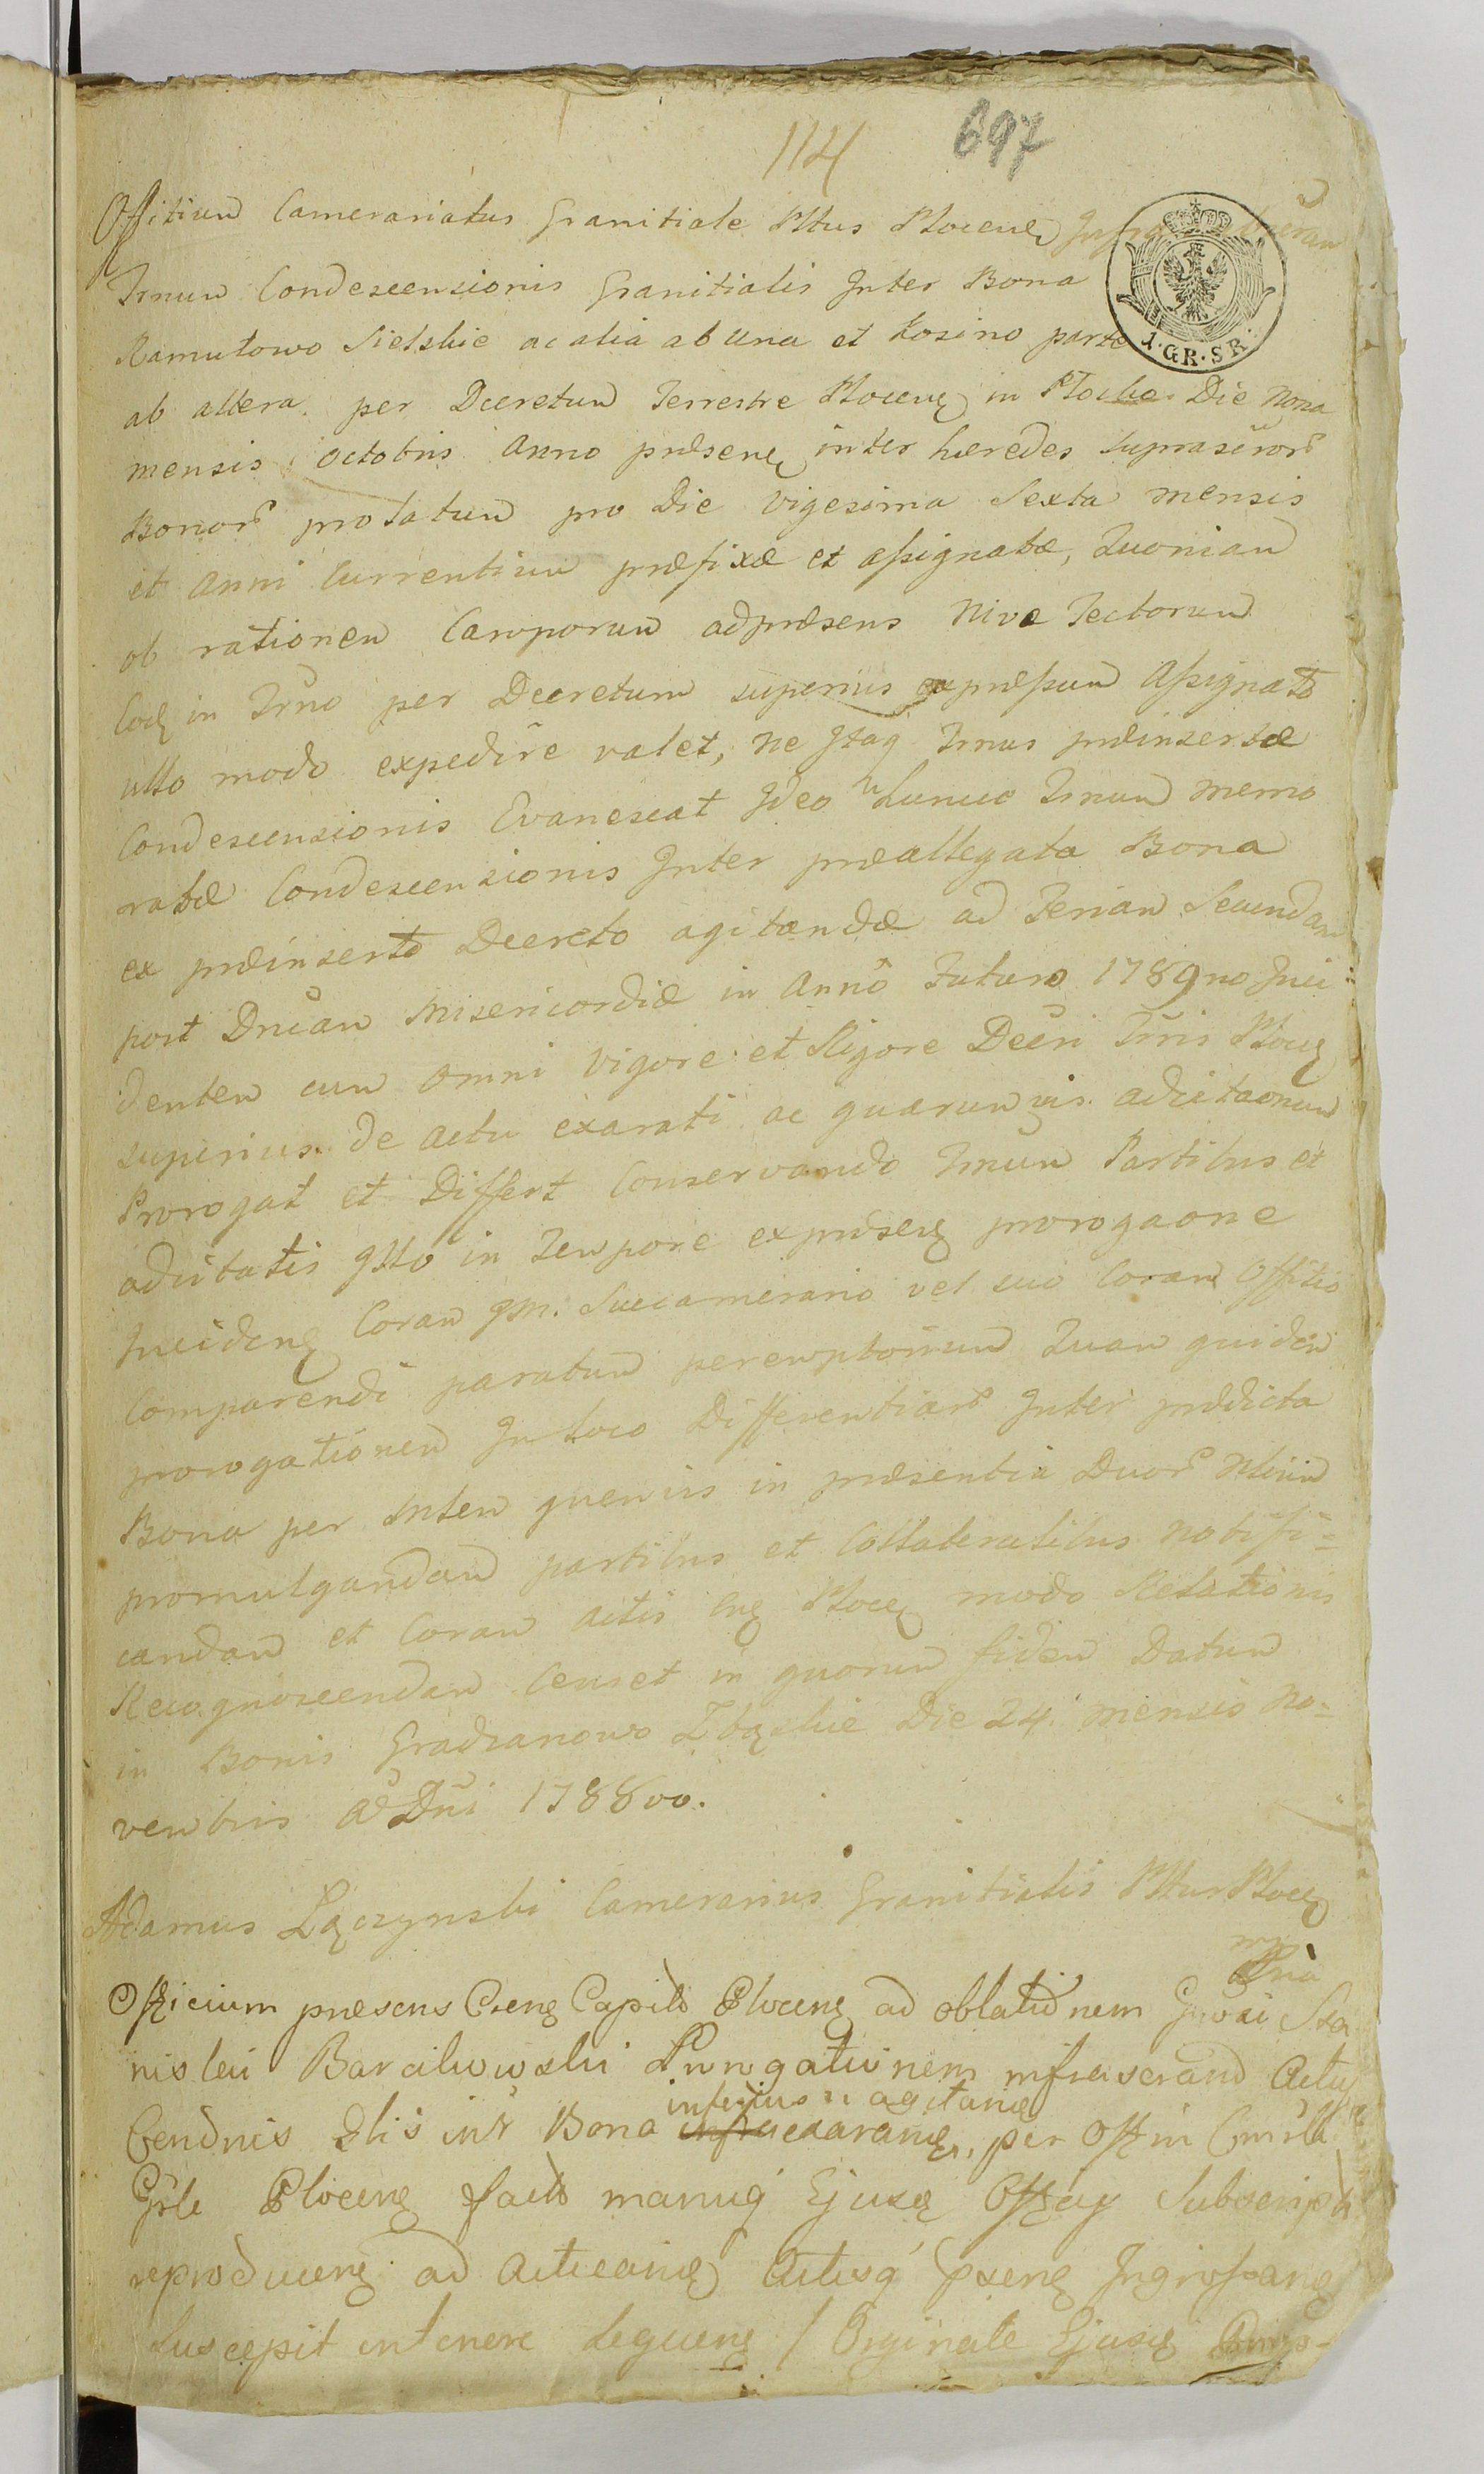 114 697
Offitium Camerariatus Granitiale Pttus Plocen
1·GR·SR·
Trnum Condescensionis Granitialis Inter Bona
Ramutowo Sielskie ac alia ab una et Kosino parte
ab altera per Decretum Terrestre Plocen in Plocko Die Nona
mensis octobris Anno præsen inter hæredes suprascrõrˀ
Bonorˀ prolatum pro Die vigesima Sexta mensis
et Anni Currentium præfixæ et assignatæ, Quoniam
ob rationem Camporum ad præsens Nive Tectorum
in Trno per Decretum superius expressum Assignato
ullo modo expedire valet, ne Itaq Trnus præinsertæ
Condescensionis Evanescat Ideo Trnum memo
ratæ Condescensionis Inter præallegata Bona
ex præinserto Decreto agitandæ ad Feriam Secundam
post Dnicam Misericordiæ in Anno Futuro 1789no Inci=
dentem cum omni vigore et Rigore Decri Trris Ploce
superius de actu exarati ac quarumvis adcitaonum
Prorogat et Differt Conservando Trnum Partibus et
adcitatis in Tempore ex præsen prorogaone
Inciden Coram Succamerario vel suo Coram Offitio
Comparendi paratum peremptorium Quam quidem
prorogationem In Loco Differentiarˀ Inter prædicta
Bona per Mtem quemvis in præsentia Duorˀ Nblium
promulgandam partibus et Collateralibus notifi=
candam et Coram actis Ploce modo Relationis
Recognoscendam Censet in quorum fidem Datum
in Bonis Gradzanowo Zbęskie Die 24 mensis No=
vembris A Dni 1788vo.
Adamus Łączynski Camerarius Granitialis Pttus Ploce
mp
Officium præsens Ploceng ad oblationem Sta
nislai Prorogationem infrascram Actu
inferius agitan
Bona per
Ploceng facto manuq Ejusq Subscripto
reproducen ad acticand Actisq Ingrossand
Suscepit in tenere sequen / Orginale Ejusq